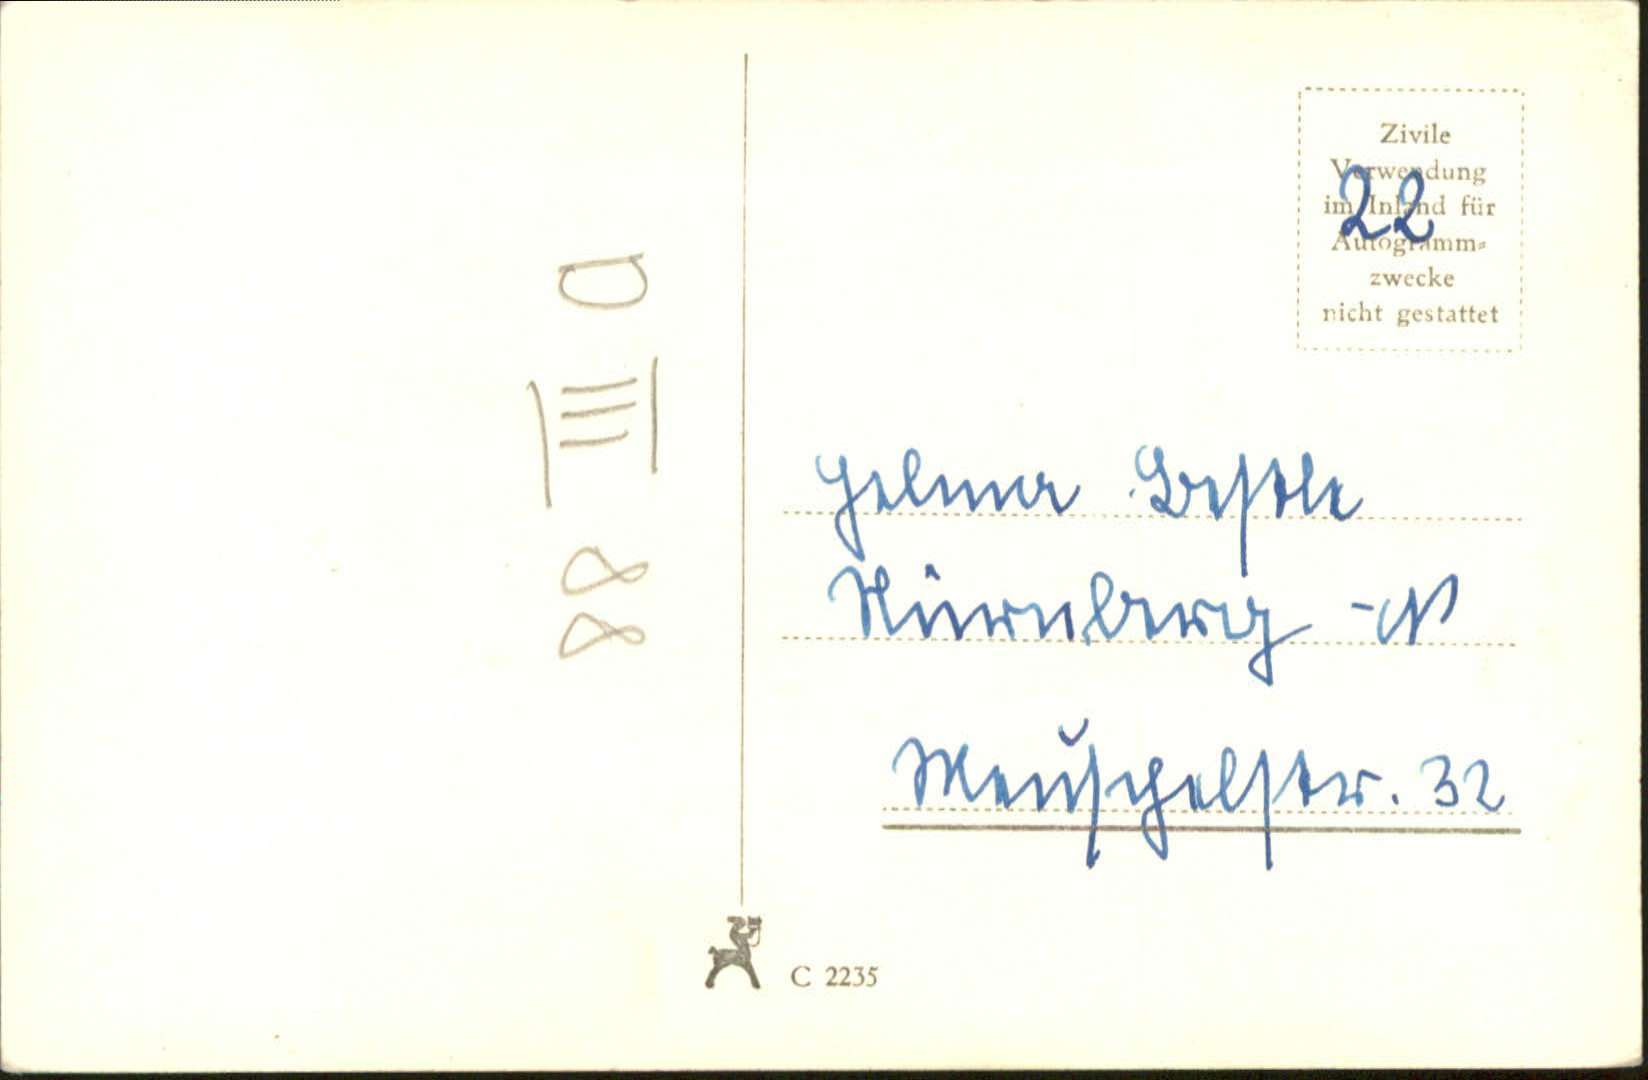 Zivile
Verwendung
im Inland für
Autogramm-
zwecke
nicht gestattet
22
D III 88
Helma Bestle
Nürnberg -N
Meuschelstr. 32
C 2235